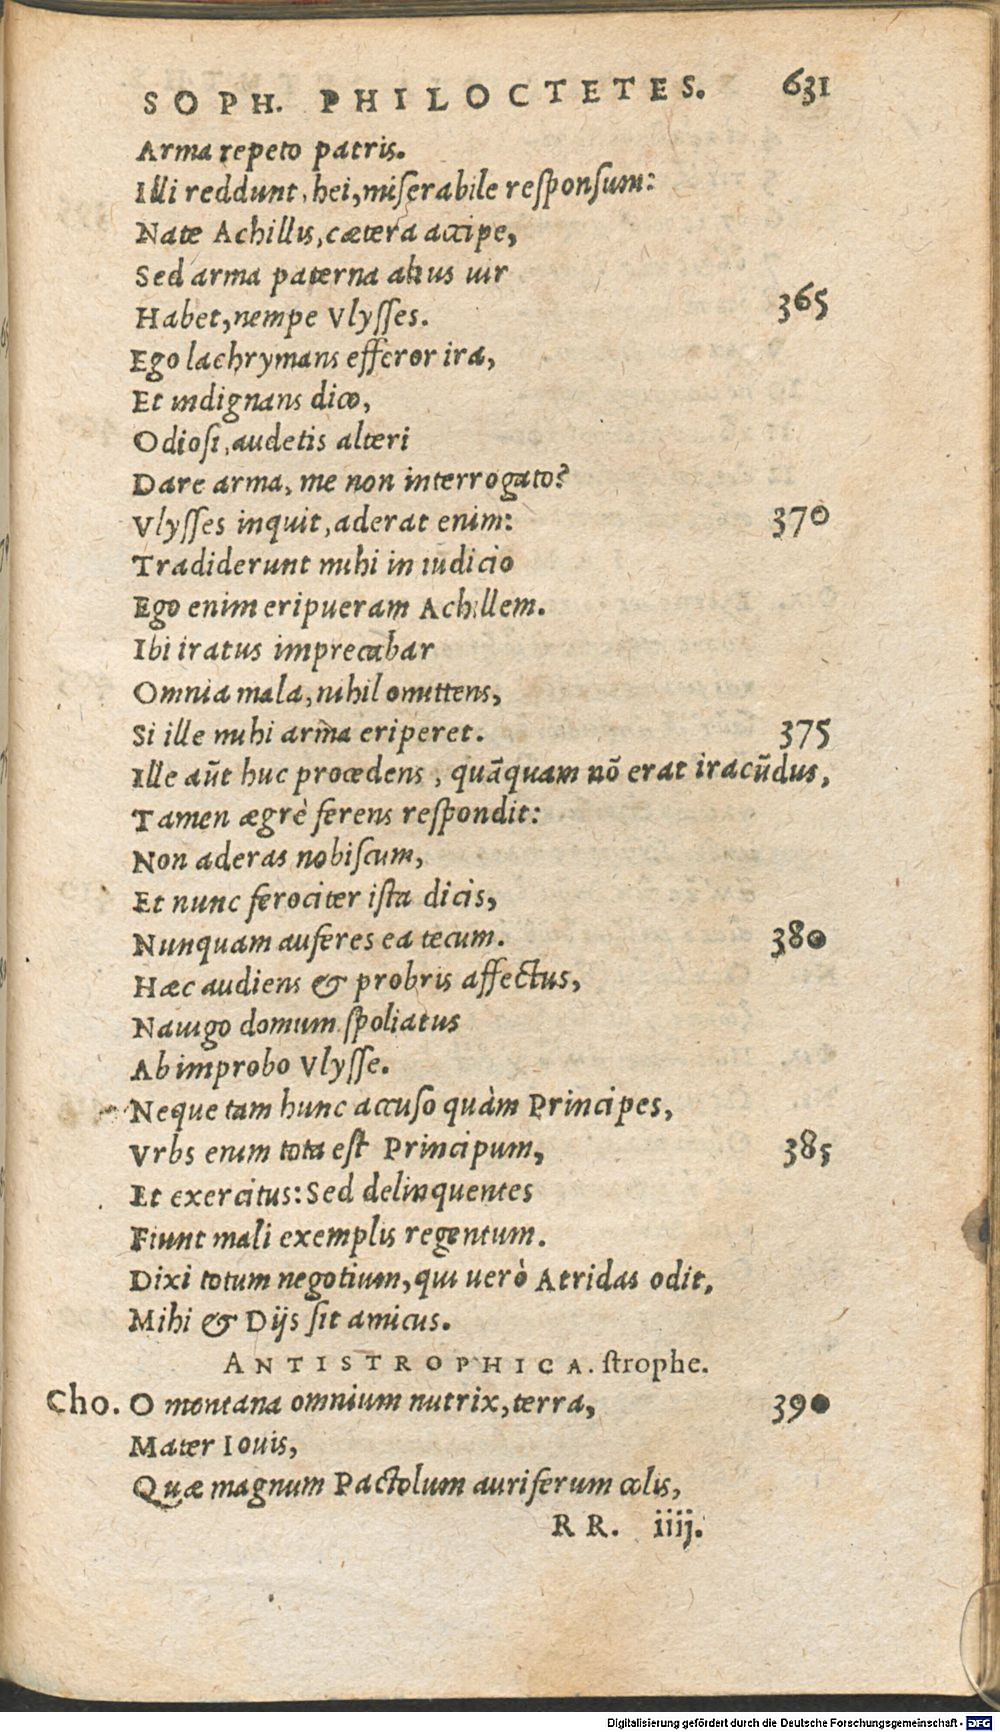 SOPH. PHILOCTETES. 631
Arma repeto patris.
Illi reddunt, hei, miſerabile reſponſum:
Nate Achillis, cætera accipe,
Sed arma paterna alius uir
Habet, nempe Vlyſſes. 365
Ego lachrymans efferor ira,
Et indignans dico,
Odioſi, audetis alteri
Dare arma, me non interrogato?
Vlyſſes inquit, aderat enim: 370
Tradiderunt mihi in iudicio
Ego enim eripueram Achillem.
Ibi iratus imprecabar
Omnia mala, nihil omittens,
Si ille mihi arma eriperet. 375
Ille aūt huc procedens, quāquam nō erat iracūdus,
Tamen ægrè ferens reſpondit:
Non aderas nobiſcum,
Et nunc ferociter iſta dicis,
Nunquam auferes ea tecum. 380
Hæc audiens & probris affectus,
Nauigo domum ſpoliatus
Ab improbo Vlyſſe.
Neque tam hunc accuſo quàm Principes,
Vrbs enim tota eſt Principum, 385
Et exercitus: Sed delinquentes
Fiunt mali exemplis regentum.
Dixi totum negotium, qui uerò Atridas odit,
Mihi & Dijs ſit amicus.
ANTISTROPHICA. ſtrophe.
Cho. O montana omnium nutrix, terra, 390
Mater Iouis,
Quæ magnum Pactolum auriferum colis,
RR. iiij.
Digitalisierung gefördert durch die Deutsche Forschungsgemeinschaft - DFG